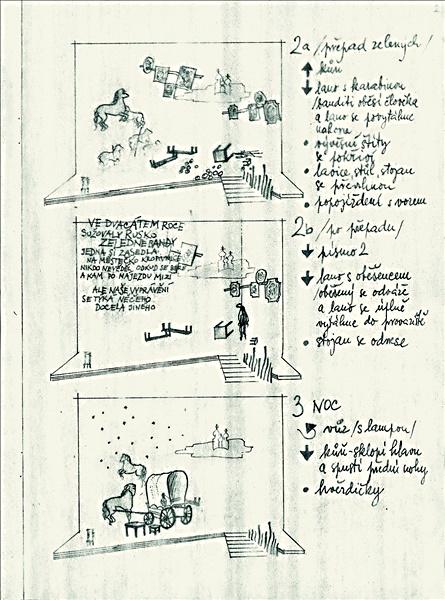 2a /přepad zelených/
↑ kůň
↓ lano s karabinou
/banditi oběsí člověka
a lano se povytáhne
nahoru
• vývěsní štíty
se pokřiví
• lavice, stůl, stojan
se převrhnou
• popojíždění s vozem
VE DVACÁTÉM ROCE
SUŽOVALY RUSKO
ZELENÉ BANDY
JEDNA SI ZASEDLA
NA MĚSTEČKO
NIKDO NEVĚDĚL ODKUD SE BERE
A KAM PO NÁJEZDU MIZÍ
ALE NAŠE VYPRÁVĚNÍ
SE TÝKÁ NĚČEHO
DOCELA JINÉHO
2b /po přepadu/
↓ písmo 2
↓ lano s oběšencem
/oběšený se odváže
a lano se úplně
vytáhne do provaziště
• stojan se odnese
3 NOC
vůz /s lampou/
↓ kůň - sklopí hlavu
a spustí přední nohy
• hvězdičky